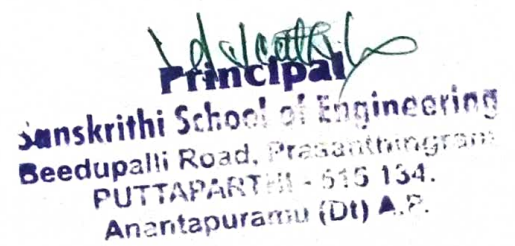 Principal
Sanskrithi School of Engineering
Beedupalli Road, Prasanthingram
PUTTAPARTHI - 515 134.
Anantapuramu (Dt) A.P.